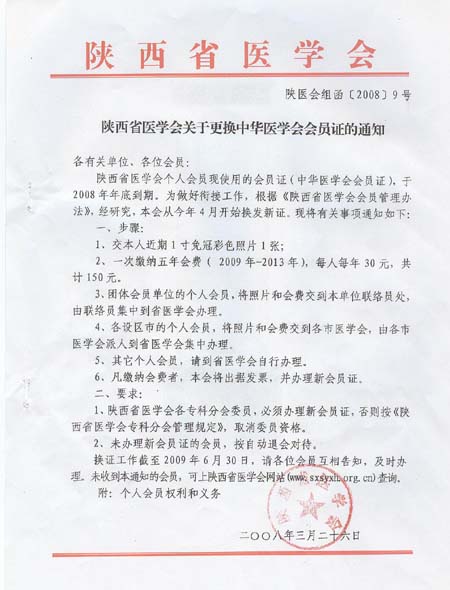 陕西省医学会
陕医会组函〔2008〕9号
陕西省医学会关于更换中华医学会会员证的通知
各有关单位、各位会员：
陕西省医学会个人会员现使用的会员证（中华医学会会员证），于
2008年年底到期。为做好衔接工作，根据《陕西省医学会会员管理办
法》，经研究，本会从今年4月开始换发新证。现将有关事项通知如下：
一、步骤：
1、交本人近期1寸免冠彩色照片1张；
2、一次缴纳五年会费（2009年-2013年），每人每年30元，共
计150元。
3、团体会员单位的个人会员，将照片和会费交到本单位联络员处，
由联络员集中到省医学会办理。
4、各设区市的个人会员，将照片和会费交到各市医学会，由各市
医学会派人到省医学会集中办理。
5、其它个人会员，请到省医学会自行办理。
6、凡缴纳会费者，本会将出据发票，并办理新会员证。
二、要求：
1、陕西省医学会各专科分会委员，必须办理新会员证，否则按《陕
西省医学会专科分会管理规定》，取消委员资格。
2、未办理新会员证的会员，按自动退会对待。
换证工作截至2009年6月30日，请各位会员互相告知，及时办
理。未收到本通知的会员，可上陕西省医学会网站(www.sxsyxh.org.cn)查询。
附：个人会员权利和义务
陕西省医学会
二〇〇八年三月二十六日